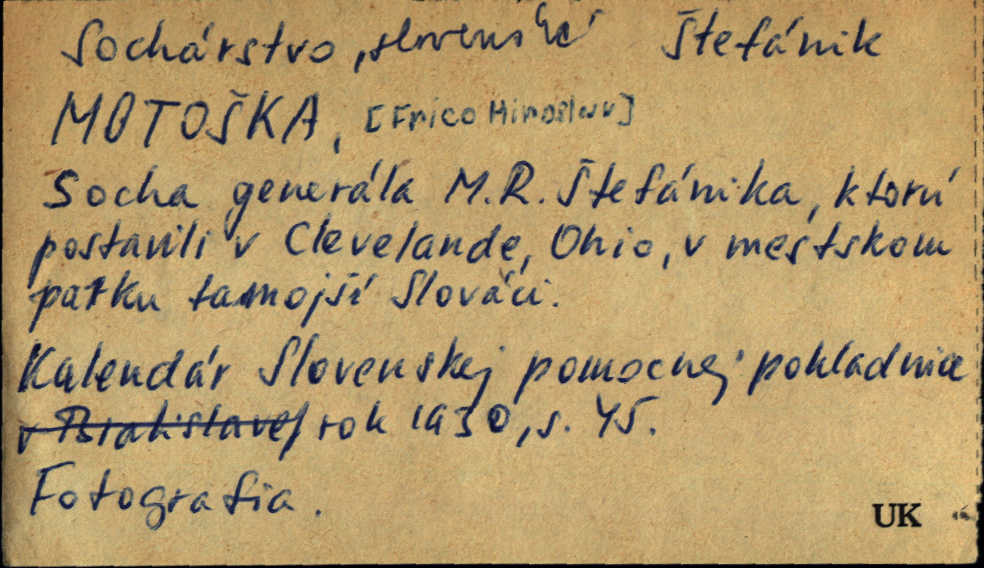 Sochárstvo, slovenské Štefánik
MOTOŠKA, [Frico Miroslav]
Socha generála M.R. Štefánika, ktorú
postavili v Clevelande, Ohio, v mestskom
parku tamojší Slováci.
Kalendár Slovenskej pomocnej pokladnice
v Bratislave/ rok 1930, s. 45.
Fotografia.
UK